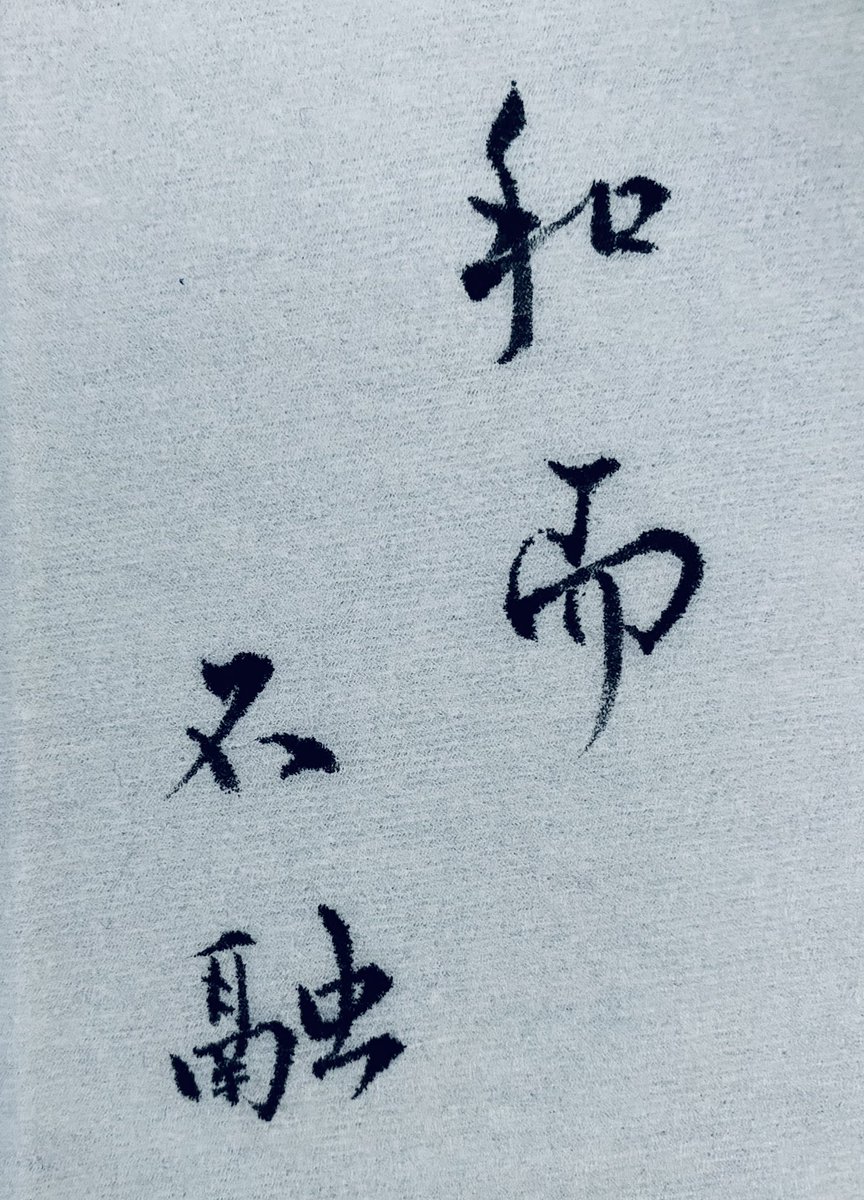 和而
不融